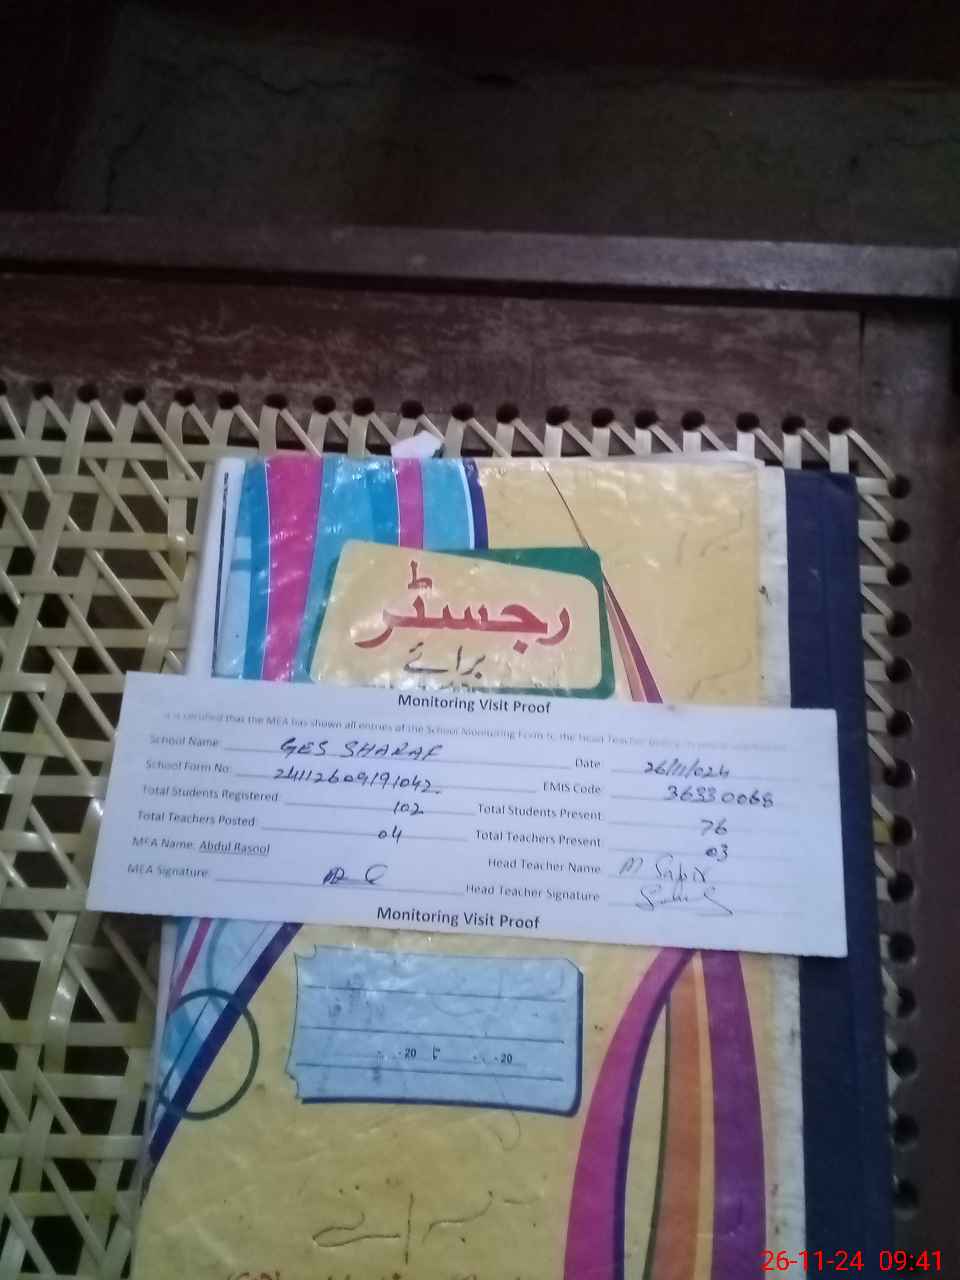 رجسٹر
برائے
Monitoring Visit Proof
It is certified that the MEA has shown all entries of the School Monitoring Form to the Head Teacher
School Name: GES SHARAF Date 26/11/024
School Form No: 24112609191042 EMIS Code: 36330068
Total Students Registered: 102 Total Students Present: 76
Total Teachers Posted: 04 Total Teachers Present: 03
MEA Name: Abdul Rasool Head Teacher Name: M Sabir
MEA Signature: Head Teacher Signature
Monitoring Visit Proof
20 تا 20
26-11-24 09:41